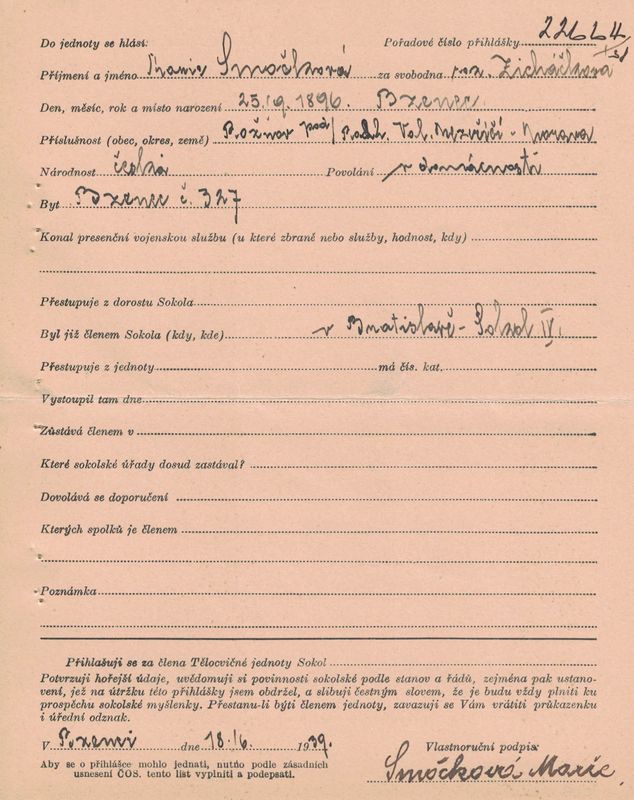 22664
Do jednoty se hlásí: Pořadové číslo přihlášky
Příjmení a jméno Marie Smočková za svobodna roz. Zicháčková
Den, měsíc, rok a místo narození 25./9. 1896. Bzenec
Příslušnost (obec, okres, země) Rožnov pod/Radh. Val. Meziříčí - Morava
Národnost česká Povolání v domácnosti
Byt Bzenec č. 327
Konal presenční vojenskou službu (u které zbraně nebo služby, hodnost, kdy)
Přestupuje z dorostu Sokola
Byl již členem Sokola (kdy, kde) v Bratislavě - Sokol IV.
Přestupuje z jednoty má čís. kat.
Vystoupil tam dne
Zůstává členem v
Které sokolské úřady dosud zastával?
Dovolává se doporučení
Kterých spolků je členem
Poznámka
Přihlašuji se za člena Tělocvičné jednoty Sokol
Potvrzuji hořejší údaje, uvědomuji si povinnosti sokolské podle stanov a řádů, zejména pak ustano-
vení, jež na útržku této přihlášky jsem obdržel, a slibuji čestným slovem, že je budu vždy plniti ku
prospěchu sokolské myšlenky. Přestanu-li býti členem jednoty, zavazuji se Vám vrátiti průkazenku
i úřední odznak.
V Bzenci dne 18./6. 1939. Vlastnoruční podpis:
Aby se o přihlášce mohlo jednati, nutno podle zásadních
usnesení ČOS. tento list vyplniti a podepsati.
Smočková Marie.